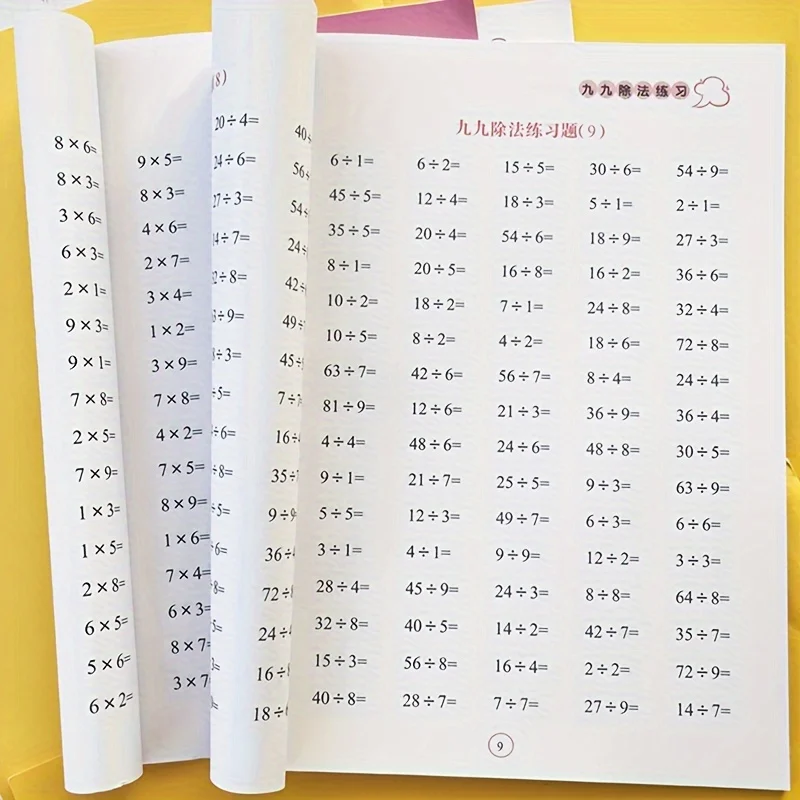 8×6=
8×3=
3×6=
6×3=
2×1=
9×3=
9×1=
7×8=
2×5=
7×9=
1×3=
1×5=
2×8=
6×5=
5×6=
6×2=
9×5=
8×3=
4×6=
2×7=
3×4=
1×2=
3×9=
7×8=
4×2=
7×5=
8×9=
1×6=
7×4=
6×3=
8×7=
3×7
8)
20÷4= 40÷
24÷6= 56÷
27÷3= 54÷
14÷7= 24÷
÷8= 42÷
÷9= 49÷
÷3= 45÷
÷5= 7÷
÷6= 16÷
÷8= 35÷
÷5= 9÷9
÷6= 36÷
÷8= 72÷
5= 24÷
3= 16÷
18÷
九九除法练习
九九除法练习题(9)
6÷1= 6÷2= 15÷5= 30÷6= 54÷9=
45÷5= 12÷4= 18÷3= 5÷1= 2÷1=
35÷5= 20÷4= 54÷6= 18÷9= 27÷3=
8÷1= 20÷5= 16÷8= 16÷2= 36÷6=
10÷2= 18÷2= 7÷1= 24÷8= 32÷4=
10÷5= 8÷2= 4÷2= 18÷6= 72÷8=
63÷7= 42÷6= 56÷7= 8÷4= 24÷4=
81÷9= 12÷6= 21÷3= 36÷9= 36÷4=
4÷4= 48÷6= 24÷6= 48÷8= 30÷5=
9÷1= 21÷7= 25÷5= 9÷3= 63÷9=
5÷5= 12÷3= 49÷7= 6÷3= 6÷6=
3÷1= 4÷1= 9÷9= 12÷2= 3÷3=
28÷4= 45÷9= 24÷3= 8÷8= 64÷8=
32÷8= 40÷5= 14÷2= 42÷7= 35÷7=
15÷3= 56÷8= 16÷4= 2÷2= 72÷9=
40÷8= 28÷7= 7÷7= 27÷9= 14÷7=
9